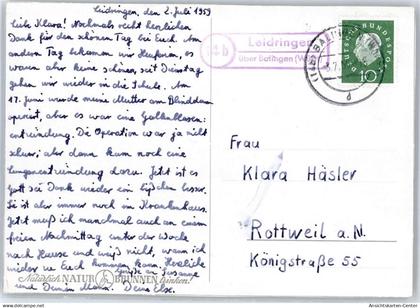 Leidringen, den 2. Juli 1959
Liebe Klara! Nochmals recht herzlichen
Dank für den schönen Tag bei Euch. Am
andern Tag bekamen wir Heuferien, es
waren aber keine schönen, seit Dienstag
gehen wir wieder in die Schule. Am
17. Juni wurde meine Mutter am Blinddarm
operiert, aber es war eine Gallenblasen-
entzündung. Die Operation war ja nicht
schwer, aber dann kam noch eine
Lungenentzündung dazu. Jetzt ist es
Gott sei Dank wieder ein bißchen besser.
Sie ist aber immer noch im Krankenhaus.
Jetzt muß ich manchmal auch an einem
freien Nachmittag unter der Woche
nach Hause und weiß nicht, wann ich
wieder zu Euch kommen kann. Herzliche
Grüße an Susanne
und Deinen Mann. Deine Else.
Natürlich NATUR BRUNNEN trinken!
14b
Leidringen
über Balingen (Württ)
DEUTSCHE BUNDESPOST
10
d
Frau
Klara Häsler
Rottweil a.N.
Königstraße 55